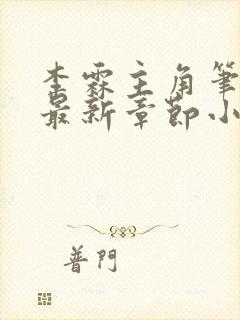 李霖主角筆
最新章節小
普門